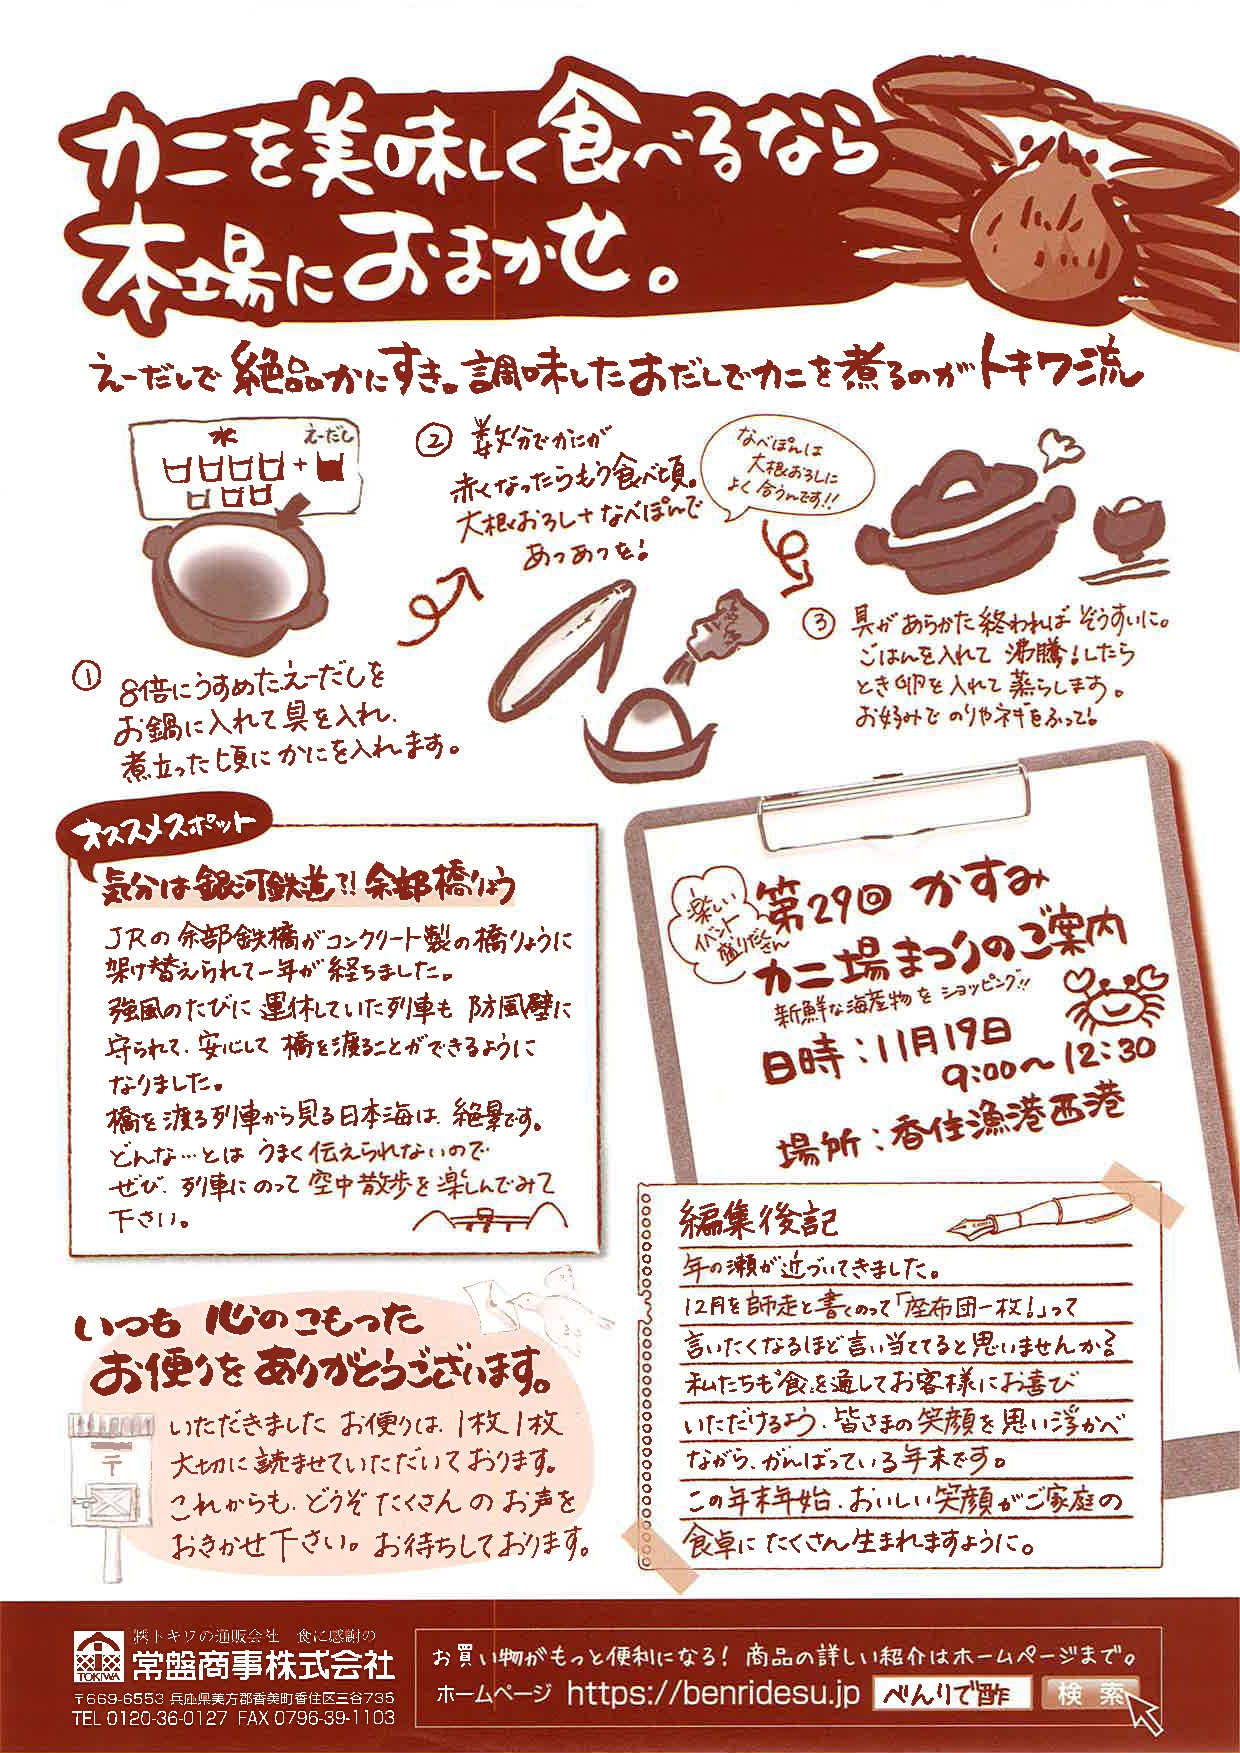 カニを美味しく食べるなら
本場におまかせ。
えーだしで絶品かにすき。調味したおだしでカニを煮るのがトキワ流
水 えーだし
+
① 8倍にうすめたえーだしを
お鍋に入れて具を入れ、
煮立った頃にかにを入れます。
② 数分でかにが
赤くなったらもう食べ頃。
大根おろし+なべぽんで
あつあつを!
なべぽんは
大根おろしに
よく合うんです!!
③ 具があらかた終わればぞうすいに。
ごはんを入れて沸騰!したら
とき卵を入れて蒸らします。
お好みでのりやネギをふって!
オススメスポット
気分は銀河鉄道?!余部橋りょう
JRの余部鉄橋がコンクリート製の橋りょうに
架け替えられて一年が経ちました。
強風のたびに運休していた列車も防風壁に
守られて、安心して橋を渡ることができるように
なりました。
橋を渡る列車から見る日本海は、絶景です。
どんな…とはうまく伝えられないので
ぜひ、列車にのって空中散歩を楽しんでみて
下さい。
楽しい
イベント
盛りだくさん
第29回 かすみ
カニ場まつりのご案内
新鮮な海産物をショッピング!!
日時:11月19日
9:00〜12:30
場所:香住漁港西港
編集後記
年の瀬が近づいてきました。
12月を師走と書くのって「座布団一枚!」って
言いたくなるほど言い当ててると思いませんか?
私たちも"食"を通してお客様にお喜び
いただけるよう、皆さまの笑顔を思い浮かべ
ながら、がんばっている年末です。
この年末年始、おいしい笑顔がご家庭の
食卓にたくさん生まれますように。
いつも心のこもった
お便りをありがとうございます。
いただきましたお便りは、1枚1枚
大切に読ませていただいております。
これからも、どうぞたくさんのお声を
おきかせ下さい。お待ちしております。
〒
TOKIWA
㈱トキワの通販会社 食に感謝の
常盤商事株式会社
〒669-6553 兵庫県美方郡香美町香住区三谷735
TEL 0120-36-0127 FAX 0796-39-1103
お買い物がもっと便利になる!商品の詳しい紹介はホームページまで。
ホームページ https://benridesu.jp べんりで酢 検索